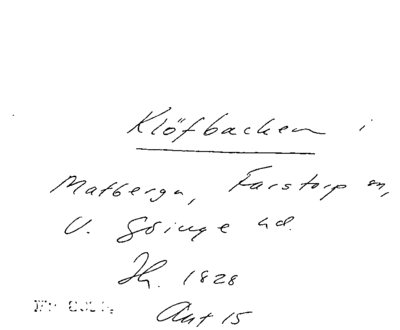 Klöfbacken i
Matberga, Farstorp sn,
V. Göinge hd.
1828
Aut 15